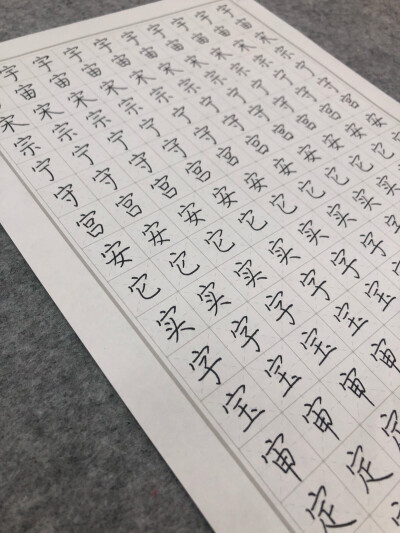 宇宇宇宇宇宇宇宇宇
宙宙宙宙宙宙宙宙宙
宋宋宋宋宋宋宋宋宋宋
宗宗宗宗宗宗宗宗宗宗
宁宁宁宁宁宁宁宁宁宁
守守守守守守守守守守
宫宫宫宫宫宫宫宫宫宫
安安安安安安安安安安
它它它它它它它它它
实实实实实实实实
字字字字字字字
宝宝宝宝宝
审审审审
定定定